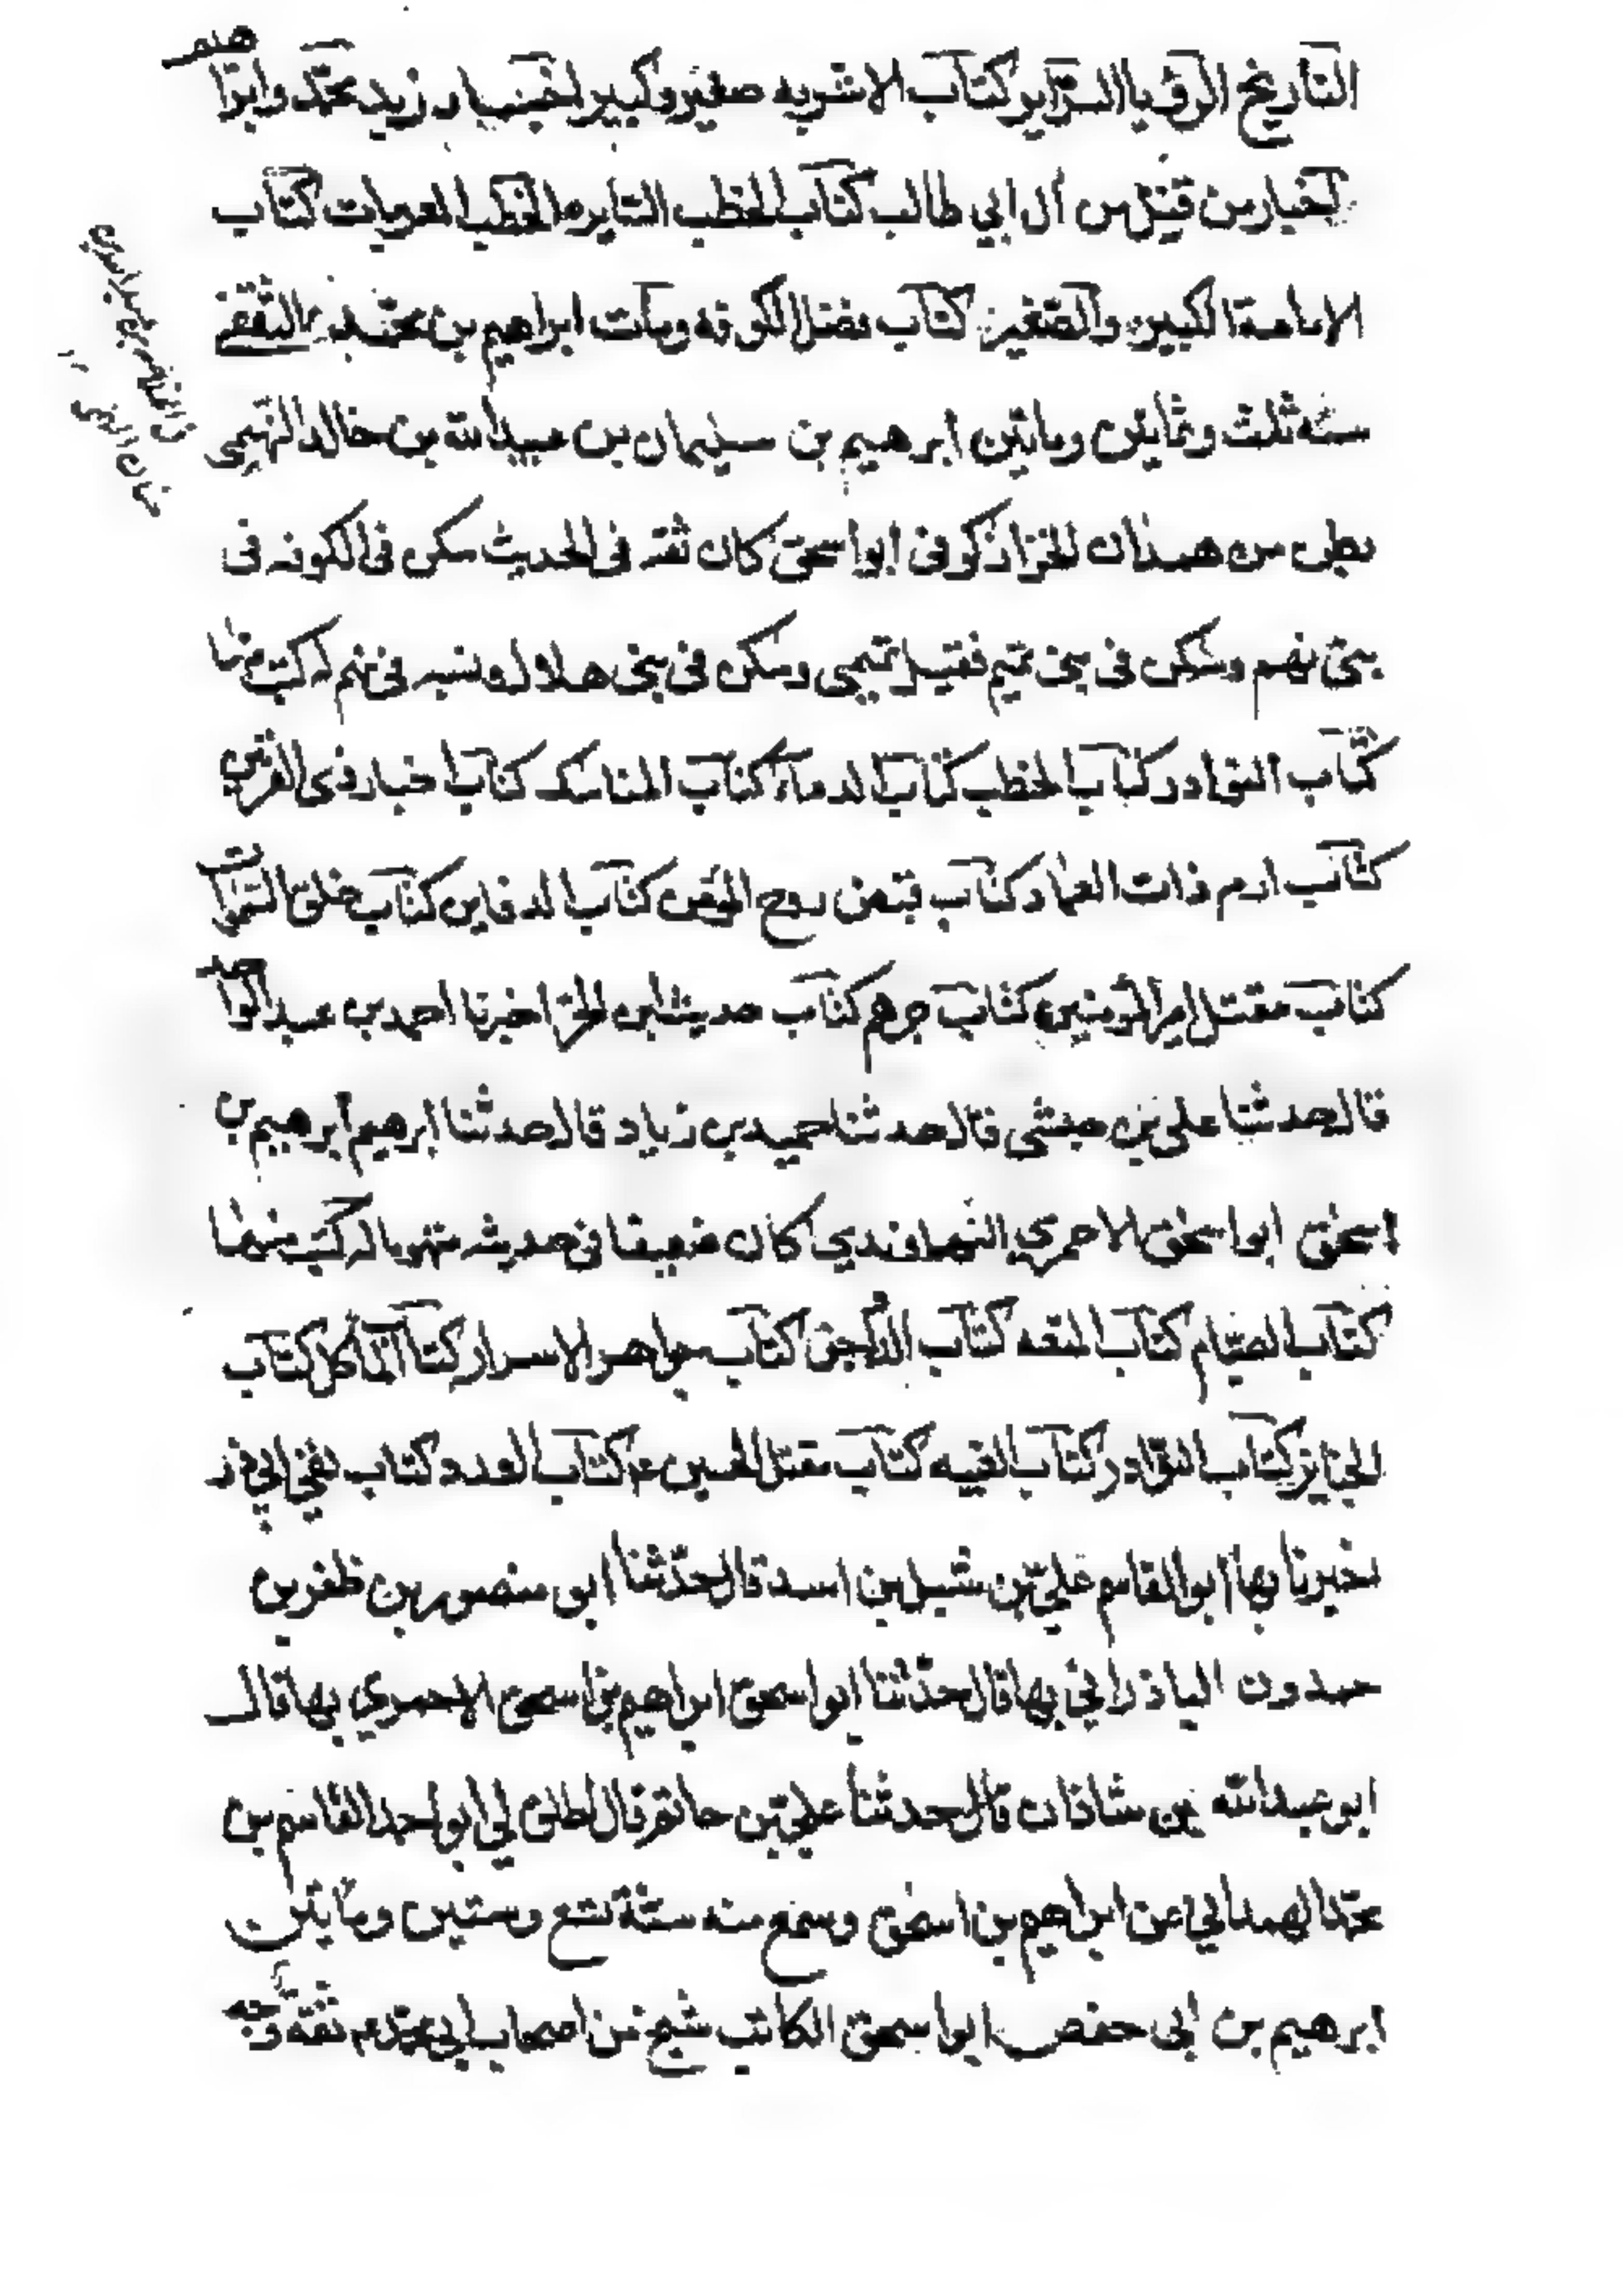 التاريخ الرؤيا السراير كتاب الاشربه صغير وكبير اخبار زيد محمّد وابراهيم
اخبار من قتل من آل ابي طالب كتاب الخطب السايره الخطب المعربات كتاب
الامامة الكبير والصغير كتاب فضل الكوفه ومات ابراهيم بن محمّد الثقفي
سنه ثلث وثمانين ومايتين ابرهيم بن سليمان بن عبيدالله بن خالد النهمى
بطن من همدان الخزاز كوفى ابو اسحق كان ثقه فى الحديث سكن فى الكوفه فى
بنى نهم وسكن فى بنى تميم فقيل تميمى وسكن فى بنى هلال ونسبه فى نهم له كتب منها
كتاب النوادر كتاب الخطب كتاب الدعآء كتاب المناسك كتاب اخبار ذى القرنين
كتاب ارم ذات العماد كتاب قبض روح المؤمن كتاب الدفاين كتاب خلق السموات
كتاب مقتل امير المؤمنين كتاب جرهم كتاب حديث ابن الحر اخبرنا احمد بن عبد الواحد
قال حدثنا على بن حبشى قال حدثنا حميد بن زياد قال حدثنا ابرهيم ابرهيم بن
اسحق ابو اسحق الاحمري النهاوندي كان ضعيفا فى حديثه متهوما له كتب منها
كتاب الصيام كتاب المتعه كتاب الدواجن كتاب جواهر الاسرار كتاب المآكل كتاب
الجنايز كتاب النوادر كتاب الغيبه كتاب مقتل الحسين ع كتاب العدد كتاب نفي ابي ذر
اخبرنا بها ابو القاسم علي بن شبل بن اسد قال حدّثنا ابو منصور بن ظفر بن
حمدون الباذراني بها قال حدّثنا ابو اسحق ابراهيم بن اسحق الاحمري بها قال
ابو عبدالله بن شاذان قال حدثنا علي بن حاتم قال اطلق لي ابو احمد القاسم بن
محمّد الهمداني عن ابراهيم بن اسحق وسمع منه سنة تسع وستين ومايتين
ابرهيم بن ابى حفص ابو اسحق الكاتب شيخ من اصحاب ابي محمّد ع ثقة وجه